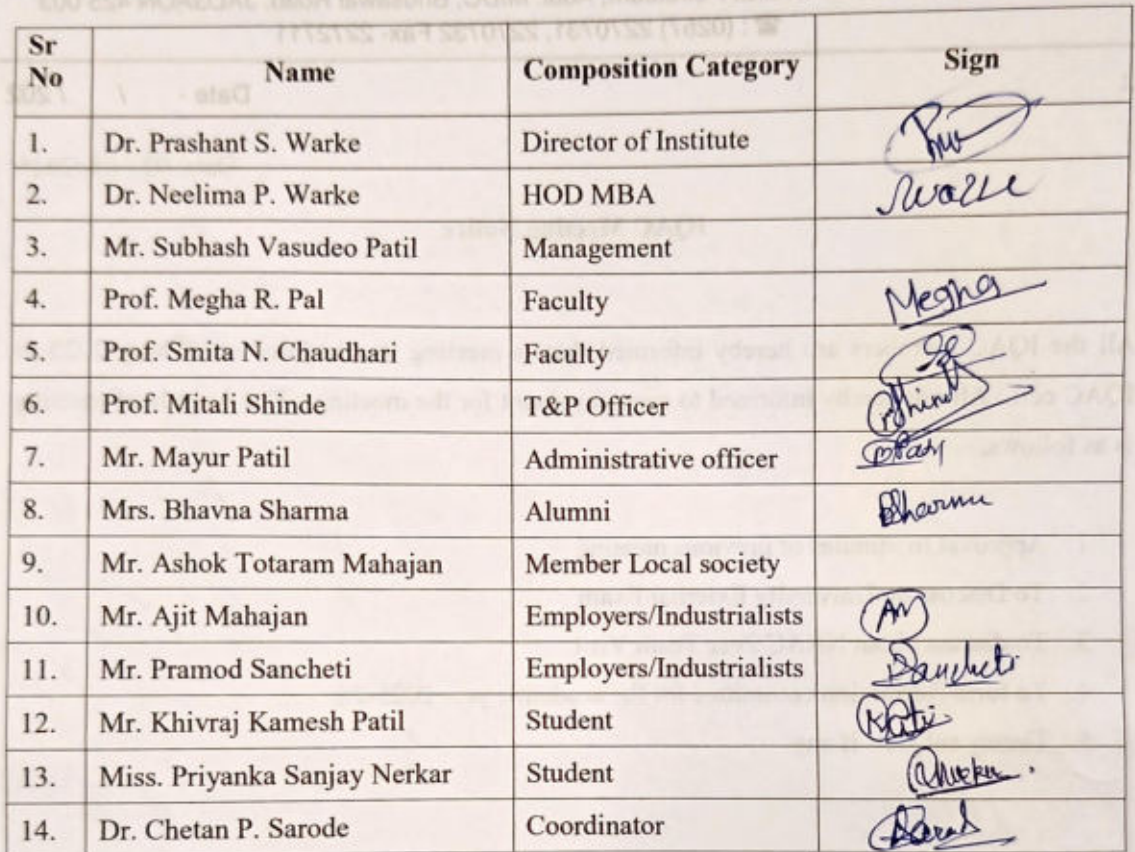 Sr No Name Composition Category Sign
1. Dr. Prashant S. Warke Director of Institute
2. Dr. Neelima P. Warke HOD MBA
3. Mr. Subhash Vasudeo Patil Management
4. Prof. Megha R. Pal Faculty Megha
5. Prof. Smita N. Chaudhari Faculty
6. Prof. Mitali Shinde T&P Officer
7. Mr. Mayur Patil Administrative officer
8. Mrs. Bhavna Sharma Alumni
9. Mr. Ashok Totaram Mahajan Member Local society
10. Mr. Ajit Mahajan Employers/Industrialists
11. Mr. Pramod Sancheti Employers/Industrialists Sancheti
12. Mr. Khivraj Kamesh Patil Student
13. Miss. Priyanka Sanjay Nerkar Student
14. Dr. Chetan P. Sarode Coordinator